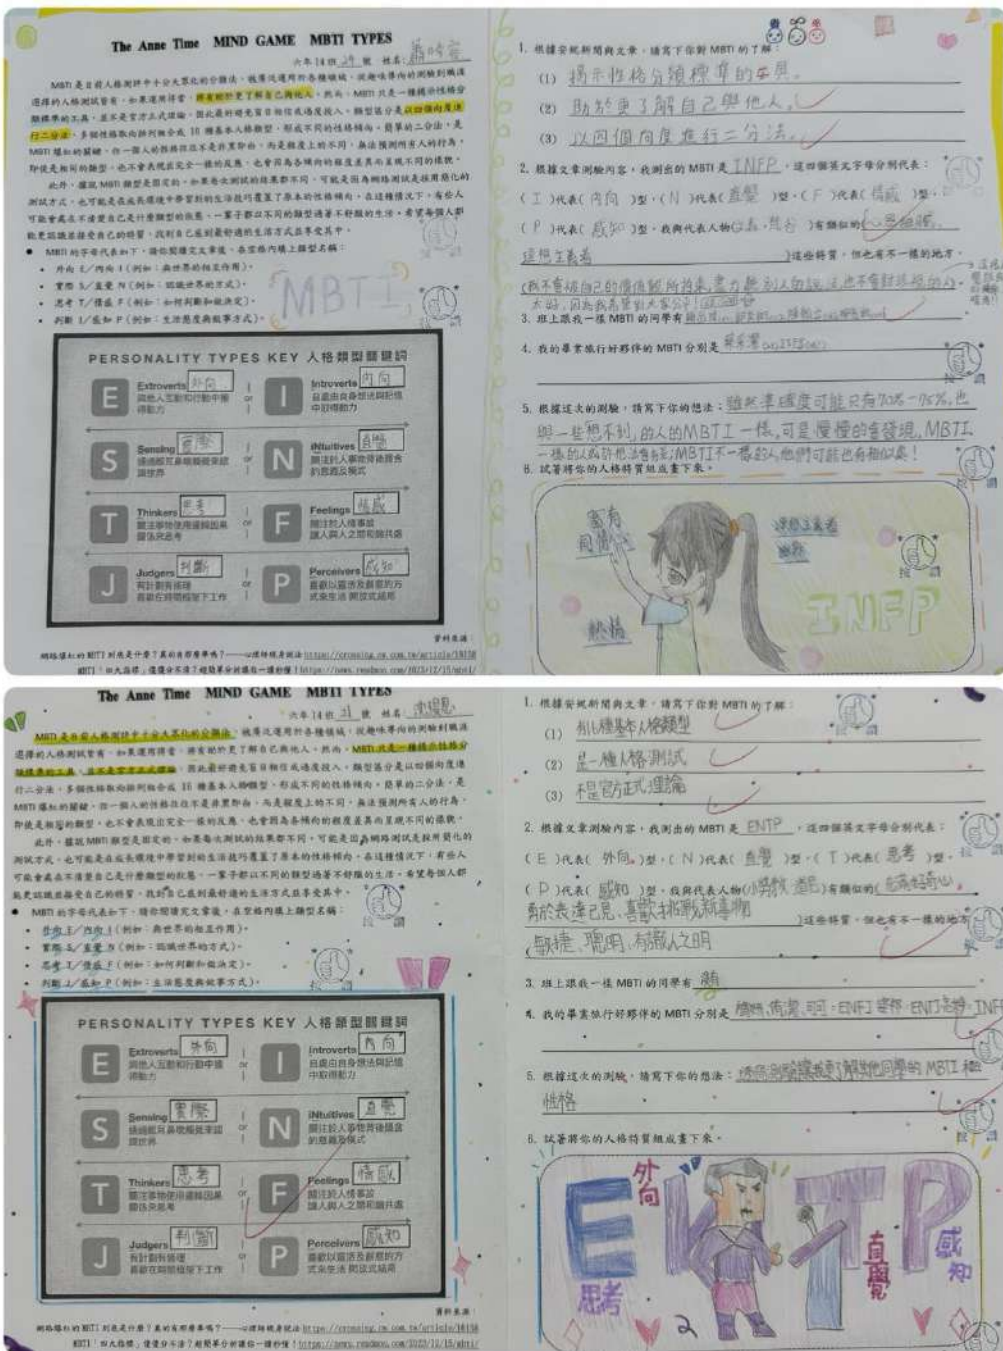 The Anne Time MIND GAME MBTI TYPES
六年14班 29 號 姓名:
MBTI 是目前人格測評中十分大眾化的分類法,被廣泛運用於各種領域,從趣味導向的測驗到職涯
選擇的人格測試皆有。如果運用得當,將有助於更了解自己與他人。然而,MBTI 只是一種揭示性格分
類標準的工具,並不是官方正式理論,因此最好避免盲目相信或過度投入。類型區分是以四個向度進
行二分法,多個性格取向排列組合成 16 種基本人格類型,形成不同的性格傾向。簡單的二分法,是
MBTI 爆紅的關鍵。但一個人的性格往往不是非黑即白,而是程度上的不同,無法預測所有人的行為。
即使是相同的類型,也不會表現出完全一樣的反應,也會因為各傾向的程度差異而呈現不同的樣貌。
此外,據說 MBTI 類型是固定的。如果每次測試的結果都不同,可能是因為網路測試是採用簡化的
測試方式,也可能是在成長環境中學習到的生活技巧覆蓋了原本的性格傾向。在這種情況下,有些人
可能會處在不清楚自己是什麼類型的狀態,一輩子都以不同的類型過著不舒服的生活。希望每個人都
能更認識並接受自己的特質,找到自己感到最舒適的生活方式並享受其中。
● MBTI 的字母代表如下,請你閱讀完文章後,在空格內填上類型名稱:
• 外向 E/內向 I(例如:與世界的相互作用)。
• 實際 S/直覺 N(例如:認識世界的方式)。
• 思考 T/情感 F(例如:如何判斷和做決定)。
• 判斷 J/感知 P(例如:生活態度與做事方式)。
MBTI
PERSONALITY TYPES KEY 人格類型關鍵詞
E Extroverts 外向 與他人互動和行動中獲得動力 or I Introverts 內向 自處由自身想法與記憶中取得動力
S Sensing 實際 透過眼耳鼻喉觸覺來認識世界 or N iNtuitives 直覺 關注於人事物背後蘊含的意義及模式
T Thinkers 思考 關注事物使用邏輯因果關係來思考 or F Feelings 情感 關注於人情事故 讓人與人之間和諧共處
J Judgers 判斷 有計劃有條理 喜歡在時間框架下工作 or P Perceivers 感知 喜歡以靈活及創意的方式來生活 開放式結局
資料來源:
網路爆紅的 MBTI 到底是什麼?真的有那麼準嗎?——心理師現身說法
MBTI「四大指標」傻傻分不清?超簡單分析讓你一讀秒懂!
1. 根據安妮新聞與文章,請寫下你對 MBTI 的了解:
(1) 揭示性格分類標準的工具。
(2) 助於更了解自己與他人。
(3) 以四個向度進行二分法。
2. 根據文章測驗內容,我測出的 MBTI 是 INFP,這四個英文字母分別代表:
(I)代表(內向)型、(N)代表(直覺)型、(F)代表(情感)型、
(P)代表(感知)型。我與代表人物
有類似的
理想主義者 )這些特質,但也有不一樣的地方。
3. 班上跟我一樣 MBTI 的同學有
4. 我的畢業旅行好夥伴的 MBTI 分別是
5. 根據這次的測驗,請寫下你的想法:雖然準確度可能只有70%~75%,也
與一些想不到的人的MBTI一樣,可是慢慢的會發現,MBTI
一樣的人或許想法會有差;MBTI不一樣的人,他們可能也有相似處!
6. 試著將你的人格特質組成畫下來。
富有同情心
理想主義者
幽默
熱情
INFP
按讚
The Anne Time MIND GAME MBTI TYPES
六年14班 21 號 姓名:
MBTI 是目前人格測評中十分大眾化的分類法,被廣泛運用於各種領域,從趣味導向的測驗到職涯
選擇的人格測試皆有。如果運用得當,將有助於更了解自己與他人。然而,MBTI 只是一種揭示性格分
類標準的工具,並不是官方正式理論,因此最好避免盲目相信或過度投入。類型區分是以四個向度進
行二分法,多個性格取向排列組合成 16 種基本人格類型,形成不同的性格傾向。簡單的二分法,是
MBTI 爆紅的關鍵。但一個人的性格往往不是非黑即白,而是程度上的不同,無法預測所有人的行為。
即使是相同的類型,也不會表現出完全一樣的反應,也會因為各傾向的程度差異而呈現不同的樣貌。
此外,據說 MBTI 類型是固定的。如果每次測試的結果都不同,可能是因為網路測試是採用簡化的
測試方式,也可能是在成長環境中學習到的生活技巧覆蓋了原本的性格傾向。在這種情況下,有些人
可能會處在不清楚自己是什麼類型的狀態,一輩子都以不同的類型過著不舒服的生活。希望每個人都
能更認識並接受自己的特質,找到自己感到最舒適的生活方式並享受其中。
● MBTI 的字母代表如下,請你閱讀完文章後,在空格內填上類型名稱:
• 外向 E/內向 I(例如:與世界的相互作用)。
• 實際 S/直覺 N(例如:認識世界的方式)。
• 思考 T/情感 F(例如:如何判斷和做決定)。
• 判斷 J/感知 P(例如:生活態度與做事方式)。
PERSONALITY TYPES KEY 人格類型關鍵詞
E Extroverts 外向 與他人互動和行動中獲得動力 or I Introverts 內向 自處由自身想法與記憶中取得動力
S Sensing 實際 透過眼耳鼻喉觸覺來認識世界 or N iNtuitives 直覺 關注於人事物背後蘊含的意義及模式
T Thinkers 思考 關注事物使用邏輯因果關係來思考 or F Feelings 情感 關注於人情事故 讓人與人之間和諧共處
J Judgers 判斷 有計劃有條理 喜歡在時間框架下工作 or P Perceivers 感知 喜歡以靈活及創意的方式來生活 開放式結局
資料來源:
網路爆紅的 MBTI 到底是什麼?真的有那麼準嗎?——心理師現身說法
MBTI「四大指標」傻傻分不清?超簡單分析讓你一讀秒懂!
1. 根據安妮新聞與文章,請寫下你對 MBTI 的了解:
(1) 有16種基本人格類型
(2) 是一種人格測試
(3) 不是官方正式理論
2. 根據文章測驗內容,我測出的 MBTI 是 ENTP,這四個英文字母分別代表:
(E)代表(外向)型、(N)代表(直覺)型、(T)代表(思考)型、
(P)代表(感知)型。我與代表人物
有類似的(充滿好奇心
勇於表達己見、喜歡挑戰新事物 )這些特質,但也有不一樣的地方
(敏捷、聰明、有識人之明
3. 班上跟我一樣 MBTI 的同學有
4. 我的畢業旅行好夥伴的 MBTI 分別是
5. 根據這次的測驗,請寫下你的想法:
性格
6. 試著將你的人格特質組成畫下來。
ENTP
外向
思考
直覺
感知